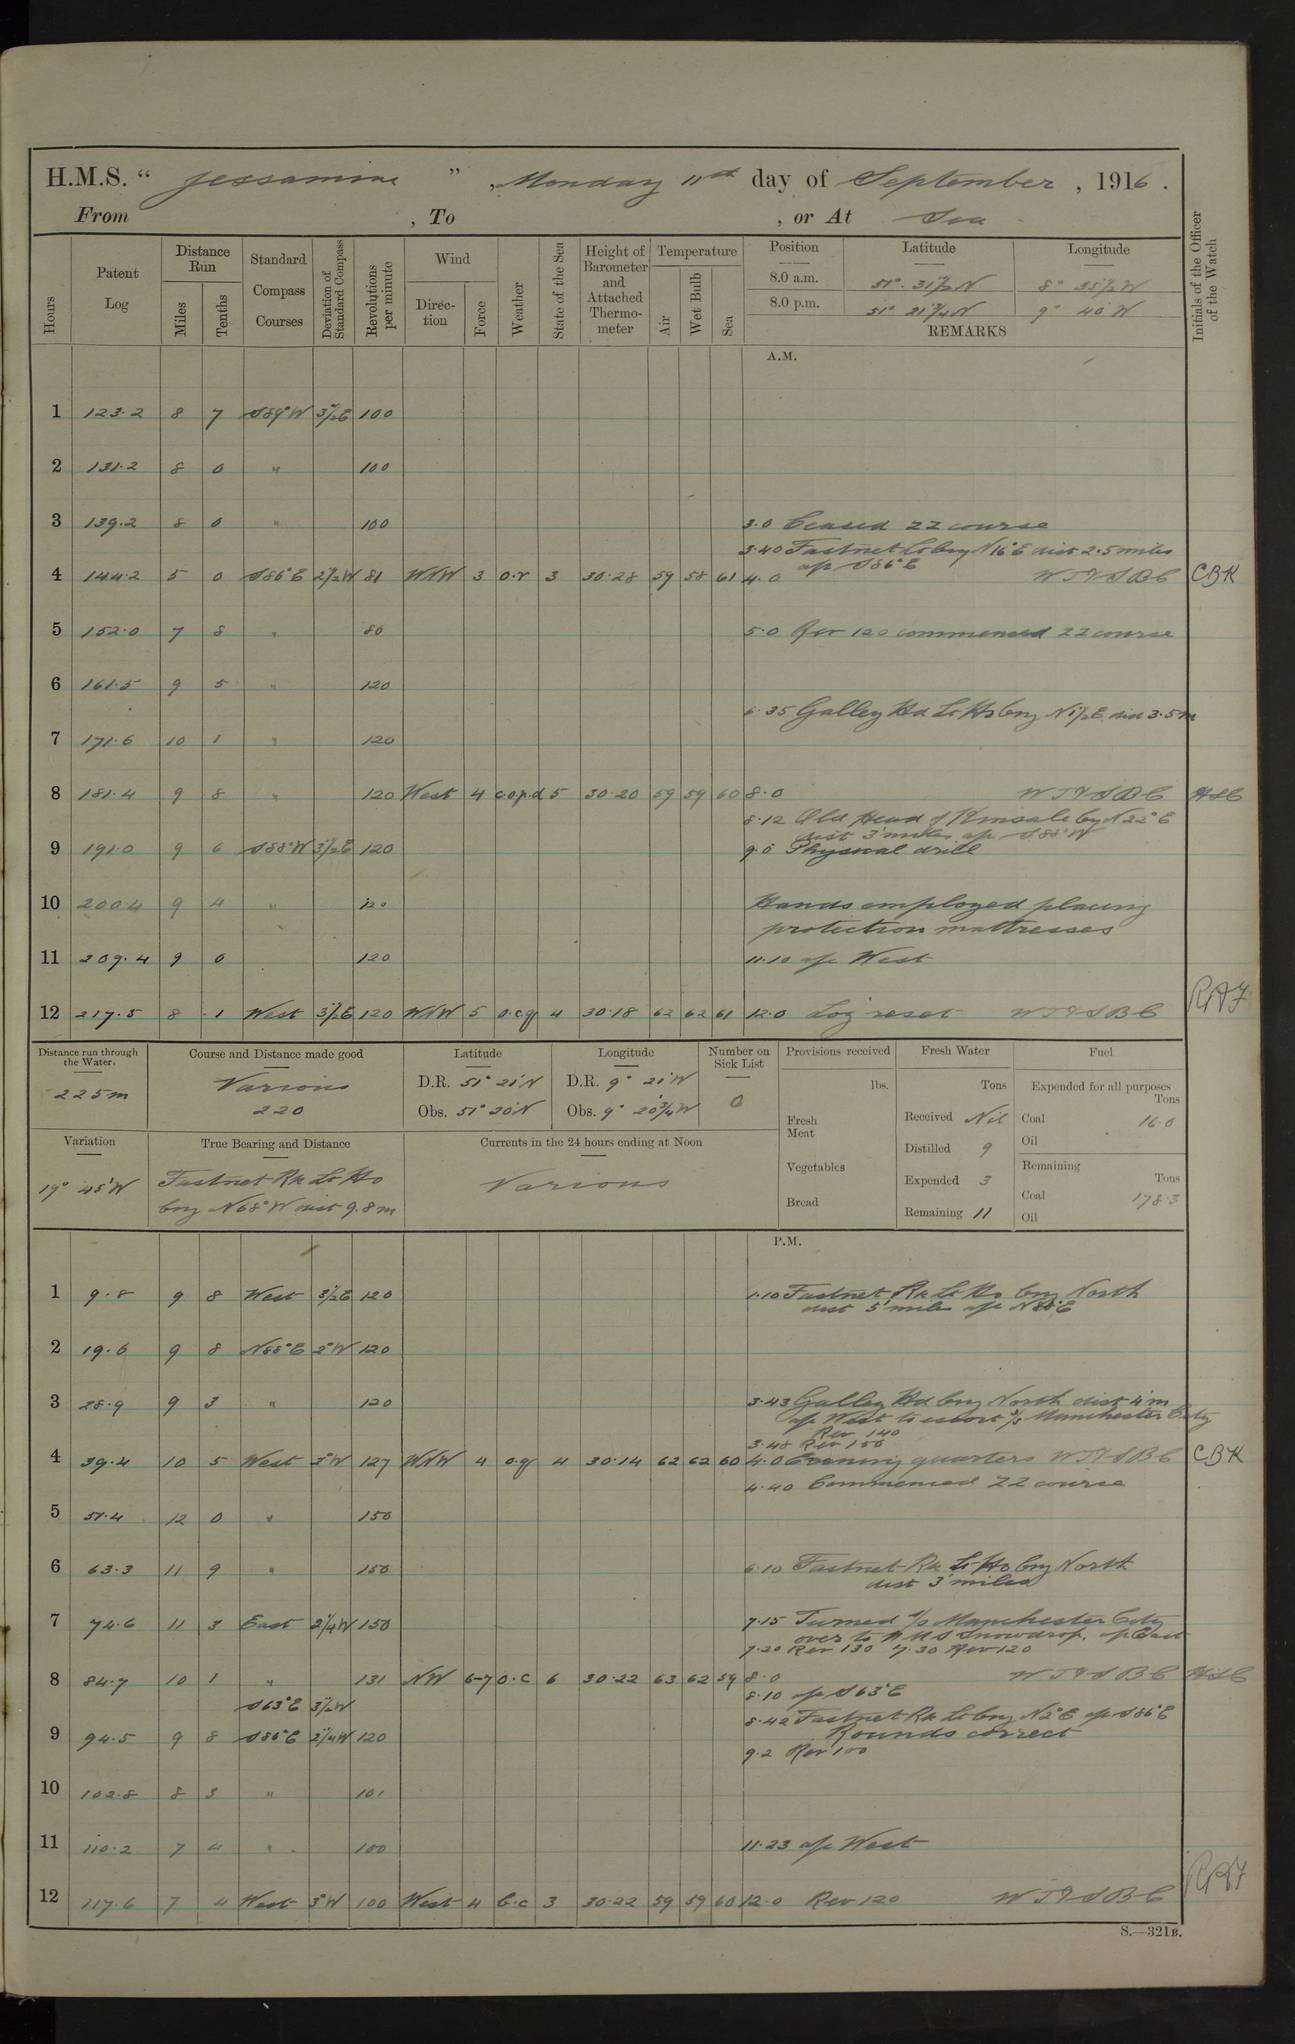 H.M.S. " Jessamine " , Monday 11th day of September , 1916 .
From , To , or At Sea
Hours
Patent Log
Distance Run
Miles
Tenths
Standard Compass Courses
Deviation of Standard Compass
Revolutions per minute
Wind
Direction
Force
Weather
State of the Sea
Height of Barometer and Attached Thermometer
Temperature
Air
Wet Bulb
Sea
Position Latitude Longitude
8.0 a.m. 51° 31½ N 8° 35½ W
8.0 p.m. 51° 21¼ N 9° 40 W
REMARKS
Initials of the Officer of the Watch
A.M.
1 123.2 8 7 S89°W 3½°E 100
2 131.2 8 0 " 100
3 139.2 8 0 " 100 3.0 Ceased ZZ course
3.40 Fastnet Lt brg N16°E dist 2.5 miles
a/c S86°E
4 144.2 5 0 S86°E 2½°W 81 WNW 3 o.r 3 30.28 59 58 61 4.0 WTVSBC CBK
5 152.0 7 8 " 80 5.0 Rev 120 commenced ZZ course
6 161.5 9 5 " 120
6.35 Galley Hd Lt Ho brg N1½E dist 3.5m
7 171.6 10 1 " 120
8 181.4 9 8 " 120 West 4 c.o.p.d 5 30.20 59 59 60 8.0 WTVSBC
8.12 Old Head of Kinsale brg N22°E
dist 3 miles a/c S88°W
9 191.0 9 6 S88°W 3½°E 120 9.0 Physical drill
10 200.4 9 4 " 120 Hands employed placing
protection mattresses
11 209.4 9 0 120 11.10 a/c West
12 217.5 8 1 West 3½°E 120 WNW 5 o.c.q 4 30.18 62 62 61 12.0 Log reset WTVSBC
Distance run through the Water.
225m
Course and Distance made good
Various
220
Latitude
D.R. 51° 21' N
Obs. 51° 20' N
Longitude
D.R. 9° 21' W
Obs. 9° 20¾' W
Number on Sick List
0
Provisions received
lbs.
Fresh Meat
Vegetables
Bread
Fresh Water
Tons
Received Nil
Distilled 9
Expended 3
Remaining 11
Fuel
Expended for all purposes
Tons
Coal 16.0
Oil
Remaining
Tons
Coal 178.3
Oil
Variation
19° 45' W
True Bearing and Distance
Fastnet Rk Lt Ho
brg N68°W dist 9.8m
Currents in the 24 hours ending at Noon
Various
P.M.
1 9.8 9 8 West 3½°E 120 1.10 Fastnet Rk Lt Ho brg North
dist 5 miles a/c N88°E
2 19.6 9 8 N88°E 2°W 120
3 28.9 9 3 " 120 3.43 Galley Hd brg North dist 4'm
a/c West to escort s/s Manchester City
Rev 140
3.48 Rev 150
4 39.4 10 5 West 3°W 127 WNW 4 o.q 4 30.14 62 62 60 4.0 Evening quarters WTVSBC CBK
4.40 Commenced ZZ course
5 51.4 12 0 " 150
6 63.3 11 9 " 150 6.10 Fastnet Rk Lt Ho brg North
dist 3 miles
7 74.6 11 3 East 2¼°W 150 7.15 Turned s/s Manchester City
over to HMS Snowdrop. a/c East
7.20 Rev 130 7.30 Rev 120
8 84.7 10 1 " 131 NW 6-7 o.c 6 30.22 63 62 59 8.0 WTVSBC
S63°E 3½°W 8.10 a/c S63°E
8.42 Fastnet Rk Lt brg N2°E a/c S86°E
9 94.5 9 8 S86°E 2¼°W 120 Rounds correct
9.2 Rev 100
10 102.8 8 3 " 101
11 110.2 7 4 " 100 11.23 a/c West
12 117.6 7 4 West 3°W 100 West 4 b.c 3 30.22 59 59 60 12.0 Rev 120 WTVSBC
S.—321B.